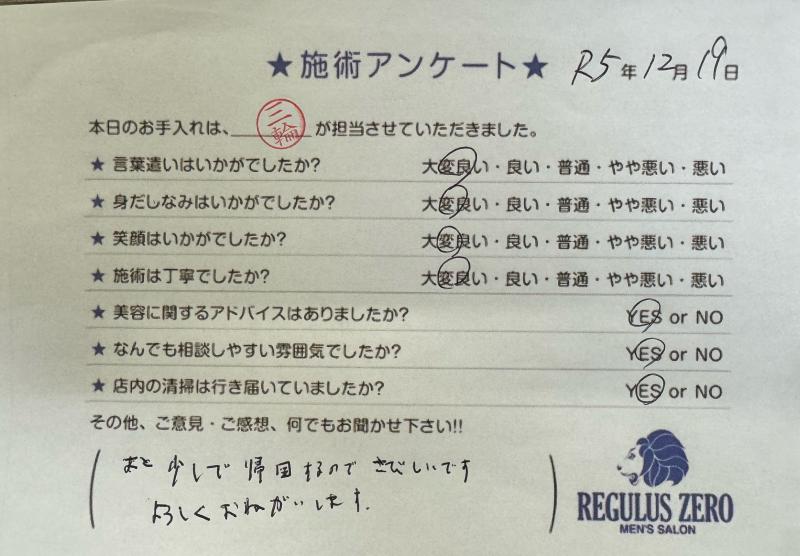 ★施術アンケート★ R5年12月19日
本日のお手入れは、三輪が担当させていただきました。
★ 言葉遣いはいかがでしたか? 大変良い・良い・普通・やや悪い・悪い
★ 身だしなみはいかがでしたか? 大変良い・良い・普通・やや悪い・悪い
★ 笑顔はいかがでしたか? 大変良い・良い・普通・やや悪い・悪い
★ 施術は丁寧でしたか? 大変良い・良い・普通・やや悪い・悪い
★ 美容に関するアドバイスはありましたか? YES or NO
★ なんでも相談しやすい雰囲気でしたか? YES or NO
★ 店内の清掃は行き届いていましたか? YES or NO
その他、ご意見・ご感想、何でもお聞かせ下さい!!
あと 少しで 帰国するので さびしいです
よろしくおねがいします.
REGULUS ZERO
MEN'S SALON